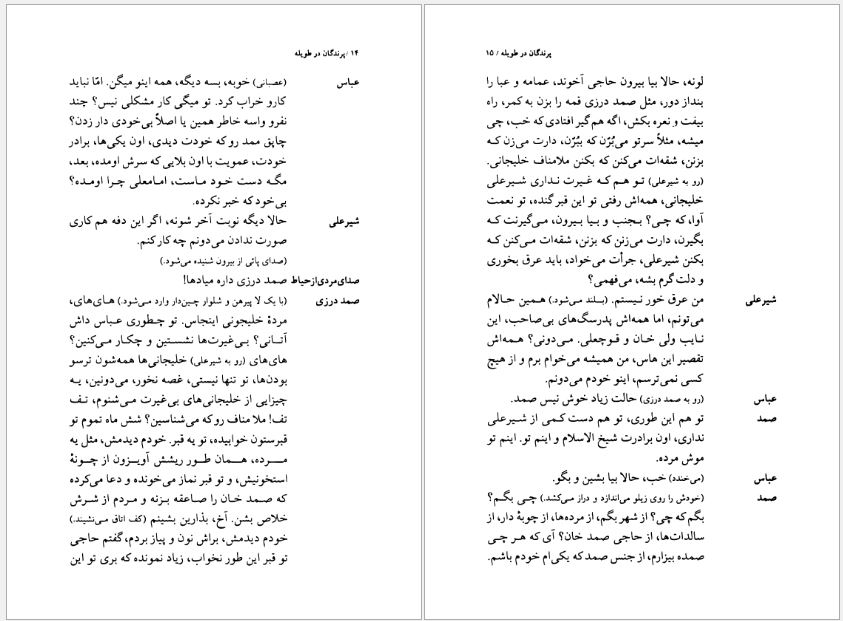 ۱۴ / پرندگان در طویله
عباس (عصبانی) خوبه، بسه دیگه، همه اینو میگن. امّا نباید
کارو خراب کرد. تو میگی کار مشکلی نیس؟ چند
نفرو واسه خاطر همین یا اصلاً بی‌خودی دار زدن؟
چاپق ممد رو که خودت دیدی، اون یکی‌ها، برادر
خودت، عمویت با اون بلایی که سرش اومده، بعد،
مگه دست خود ماست، امامعلی چرا اومده؟
بی‌خود که خبر نکرده.
شیرعلی حالا دیگه نوبت آخر شونه، اگر این دفه هم کاری
صورت ندادن می‌دونم چه کار کنم.
(صدای پائی از بیرون شنیده می‌شود.)
صدای‌مردی‌ازحیاط صمد درزی داره میادها!
صمد درزی (با یک لا پیرهن و شلوار چین‌دار وارد می‌شود.) های‌های،
مردهٔ خلیجونی اینجاس. تو چطوری عباس داش
آتانی؟ بی‌غیرت‌ها نشستین و چکار می‌کنین؟
های‌های (رو به شیرعلی) خلیجانی‌ها همه‌شون ترسو
بودن‌ها، تو تنها نیستی، غصه نخور، می‌دونین، یه
چیزایی از خلیجانی‌های بی‌غیرت می‌شنوم، تف
تف! ملا مناف رو که می‌شناسین؟ شش ماه تموم تو
قبرستون خوابیده، تو یه قبر. خودم دیدمش، مثل یه
مرده، همان طور ریشش آویزون از چونهٔ
استخونیش، و تو قبر نماز می‌خونده و دعا می‌کرده
که صمد خان را صاعقه بزنه و مردم از شرش
خلاص بشن. آخ، بذارین بشینم (کف اتاق می‌نشیند.)
خودم دیدمش، براش نون و پیاز بردم، گفتم حاجی
تو قبر این طور نخواب، زیاد نمونده که بری تو این
پرندگان در طویله / ۱۵
لونه، حالا بیا بیرون حاجی آخوند، عمامه و عبا را
بنداز دور، مثل صمد درزی قمه را بزن به کمر، راه
بیفت و نعره بکش، اگه هم گیر افتادی که خب، چی
میشه، مثلاً سرتو می‌بُرّن که ببُرّن، دارت می‌زن که
بزنن، شقه‌ات می‌کنن که بکنن ملامناف خلیجانی.
(رو به شیرعلی) تو هم که غیرت نداری شیرعلی
خلیجانی، همه‌اش رفتی تو این قبر گنده، تو نعمت
آوا، که چی؟ بجنب و بیا بیرون، می‌گیرنت که
بگیرن، دارت می‌زنن که بزنن، شقه‌ات می‌کنن که
بکنن شیرعلی، جرأت می‌خواد، باید عرق بخوری
و دلت گرم بشه، می‌فهمی؟
شیرعلی من عرق خور نیستم. (بلند می‌شود.) همین حالام
می‌تونم، اما همه‌اش پدرسگ‌های بی‌صاحب، این
نایب ولی خان و قوچعلی. می‌دونی؟ همه‌اش
تقصیر این هاس، من همیشه می‌خوام برم و از هیچ
کسی نمی‌ترسم، اینو خودم می‌دونم.
عباس (رو به صمد درزی) حالت زیاد خوش نیس صمد.
صمد تو هم این طوری، تو هم دست کمی از شیرعلی
نداری، اون برادرت شیخ الاسلام و اینم تو. اینم تو
موش مرده.
عباس (می‌خندد) خب، حالا بیا بشین و بگو.
صمد (خودش را روی زیلو می‌اندازه و دراز می‌کشد.) چی بگم؟
بگم که چی؟ از شهر بگم، از مرده‌ها، از چوبهٔ دار، از
سالدات‌ها، از حاجی صمد خان؟ آی که هر چی
صمده بیزارم، از جنس صمد که یکی‌ام خودم باشم.